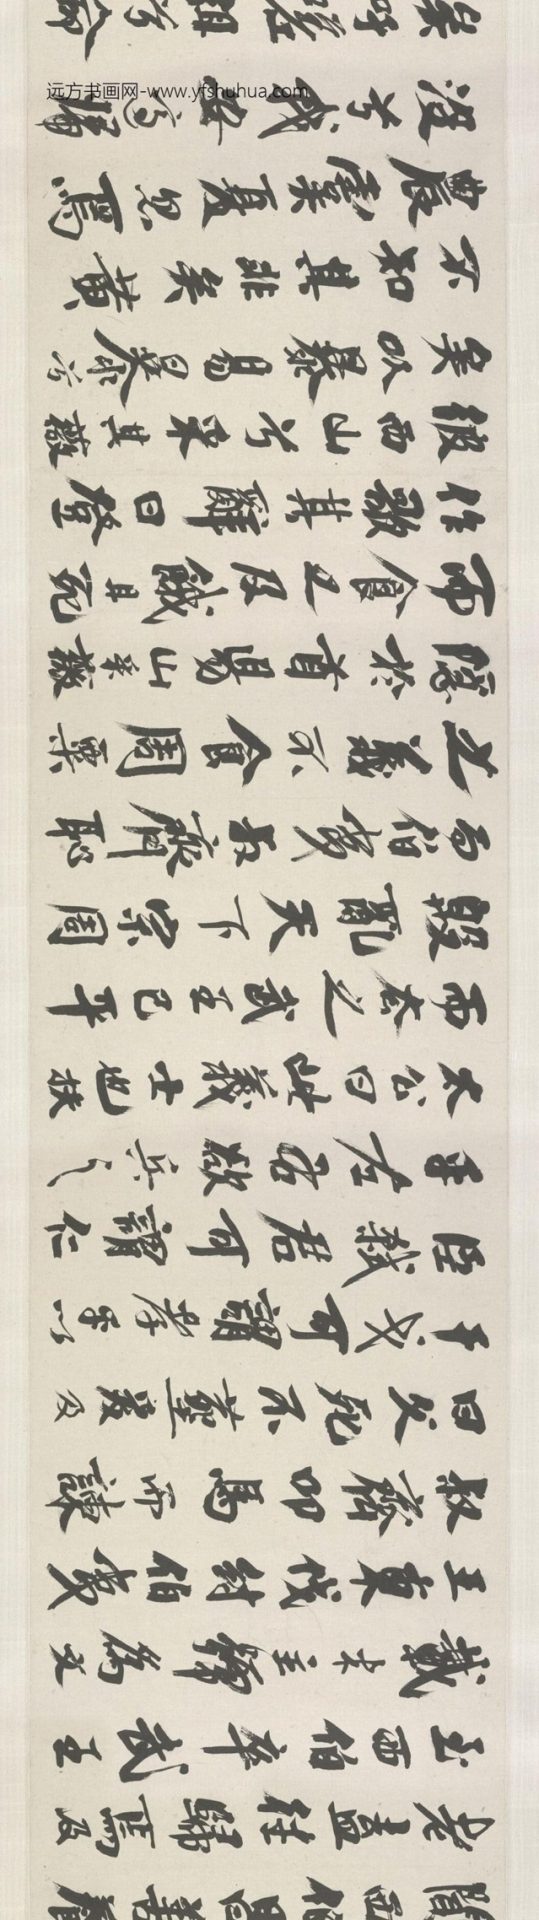 远方书画网-www.yfshuhua.com
聞西伯昌善養
老盍往歸焉及
至西伯卒武王
載木主號為文
王東伐紂伯夷
叔齊叩馬而諫
曰父死不葬爰及
干戈可謂孝乎以
臣弒君可謂仁
乎左右欲兵之
太公曰此義士也扶
而去之武王已平
殷亂天下宗周
而伯夷叔齊恥
之義不食周粟
隱於首陽山采薇
而食之及餓且死
作歌其辭曰登
彼西山兮采其薇
矣以暴易暴兮
不知其非矣黃
農虞夏忽焉
沒兮我安適歸
矣吁嗟徂兮命